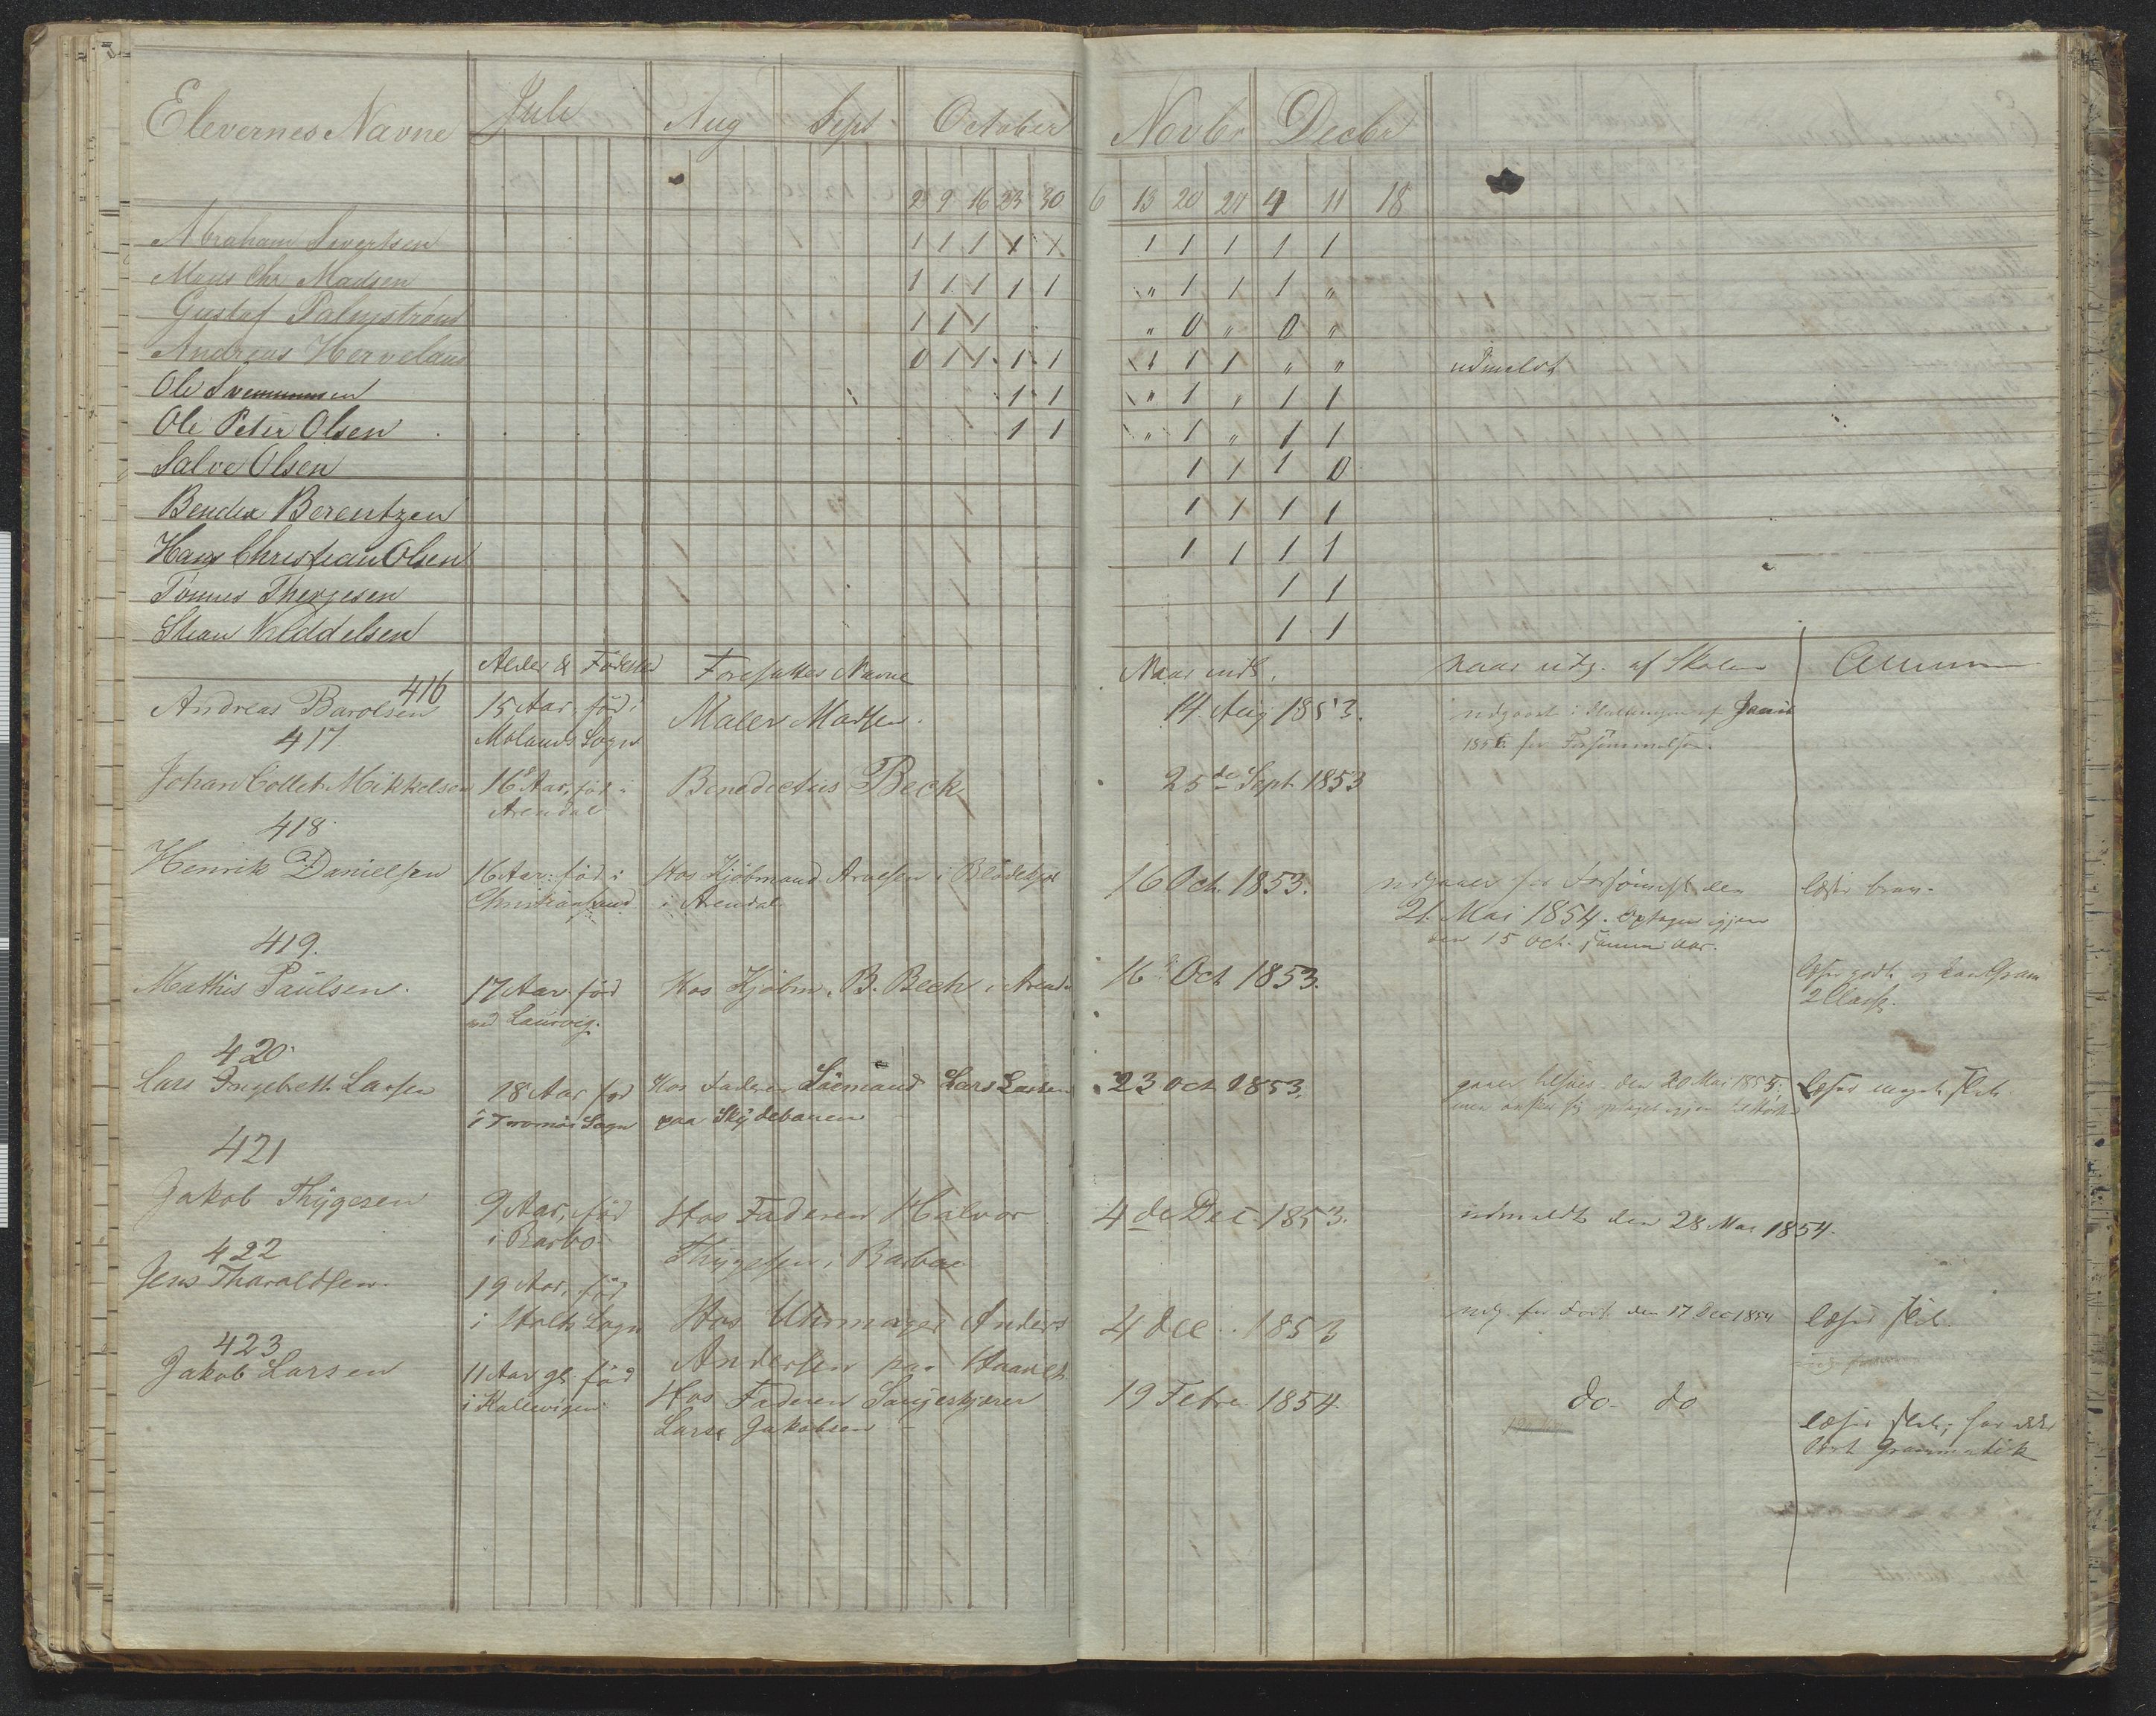 Elevernes Navne Juli Aug Sept October Novbr Decbr
2 9 16 23 30 6 13 20 27 4 11 18
Abraham Sivertsen 1 1 1 1 1 1 1 1 1 1
Mads Chr Madsen 1 1 1 1 1 " 1 1 1 "
Gustaf Palmstrøm 1 1 1 " 0 " 0 "
Andreas Herveland 0 1 1 1 1 1 1 1 " " udmeldt
Ole 1 1 " 1 " 1 1
Ole Peter Olsen 1 1 " 1 " 1 1
Salve Olsen 1 1 1 0
Bendix Berentzen 1 1 1 1
Hans Christian Olsen 1 1 1 1
Tönnes Therjesen 1 1
1 1
Alder & Födested Foresattes Navne Naar indt. naar udg. af Skolen Anm
416
Andreas Barolsen 15 Aar. föd i Maler 14. Aug 1853. udgaaet i af Junii
Molands Sogn 185 for Forsömmelse.
417
Johan Collet Mikkelsen 16 Aar, föd i Benedictus Beck 25de Sept 1853
Arendal
418
Henrik Danielsen 16 Aar. föd i Hos Kjöbmand i 16 Oct. 1853. udgaaer for Forsömmelse den læser brav.
Christiansand i Arendal 21. Mai 1854. Optagen igjen
den 15 Oct. samme Aar.
419.
Mathis Paulsen. 17 Aar föd Hos Kjöbm. B. Bech i Arendal 16 Oct 1853. læser godt og kan Gram
ved Laurvig. 2 Class.
420
Lars Ingebreth Larsen 18 Aar föd Hos Faderen Lars Larsen 23 Oct 1853. den 20 Mai 1855; Læser meget slet.
i Tromöe Sogn paa Skydebanen igjen
421
Jakob Thygesen 9 Aar, föd Hos Faderen Halvor 4 de Dec. 1853. udmeldt den 28 Mai 1854.
i Barbo Thygesen i Barboe
422
Jens Tharaldsen. 19 Aar, föd
i Holts Sogn Hos Uhrmager Anders 4 Dec. 1853 udg. for Fors. den 17 Dec 1854 læser slet.
Andersen paa
423
Jakob Larsen 11 Aar gl. föd Hos Faderen 19 Febr. 1854. do. do læser slet, har ikke
i Kallevigen Lars Jakobsen lært Grammatik